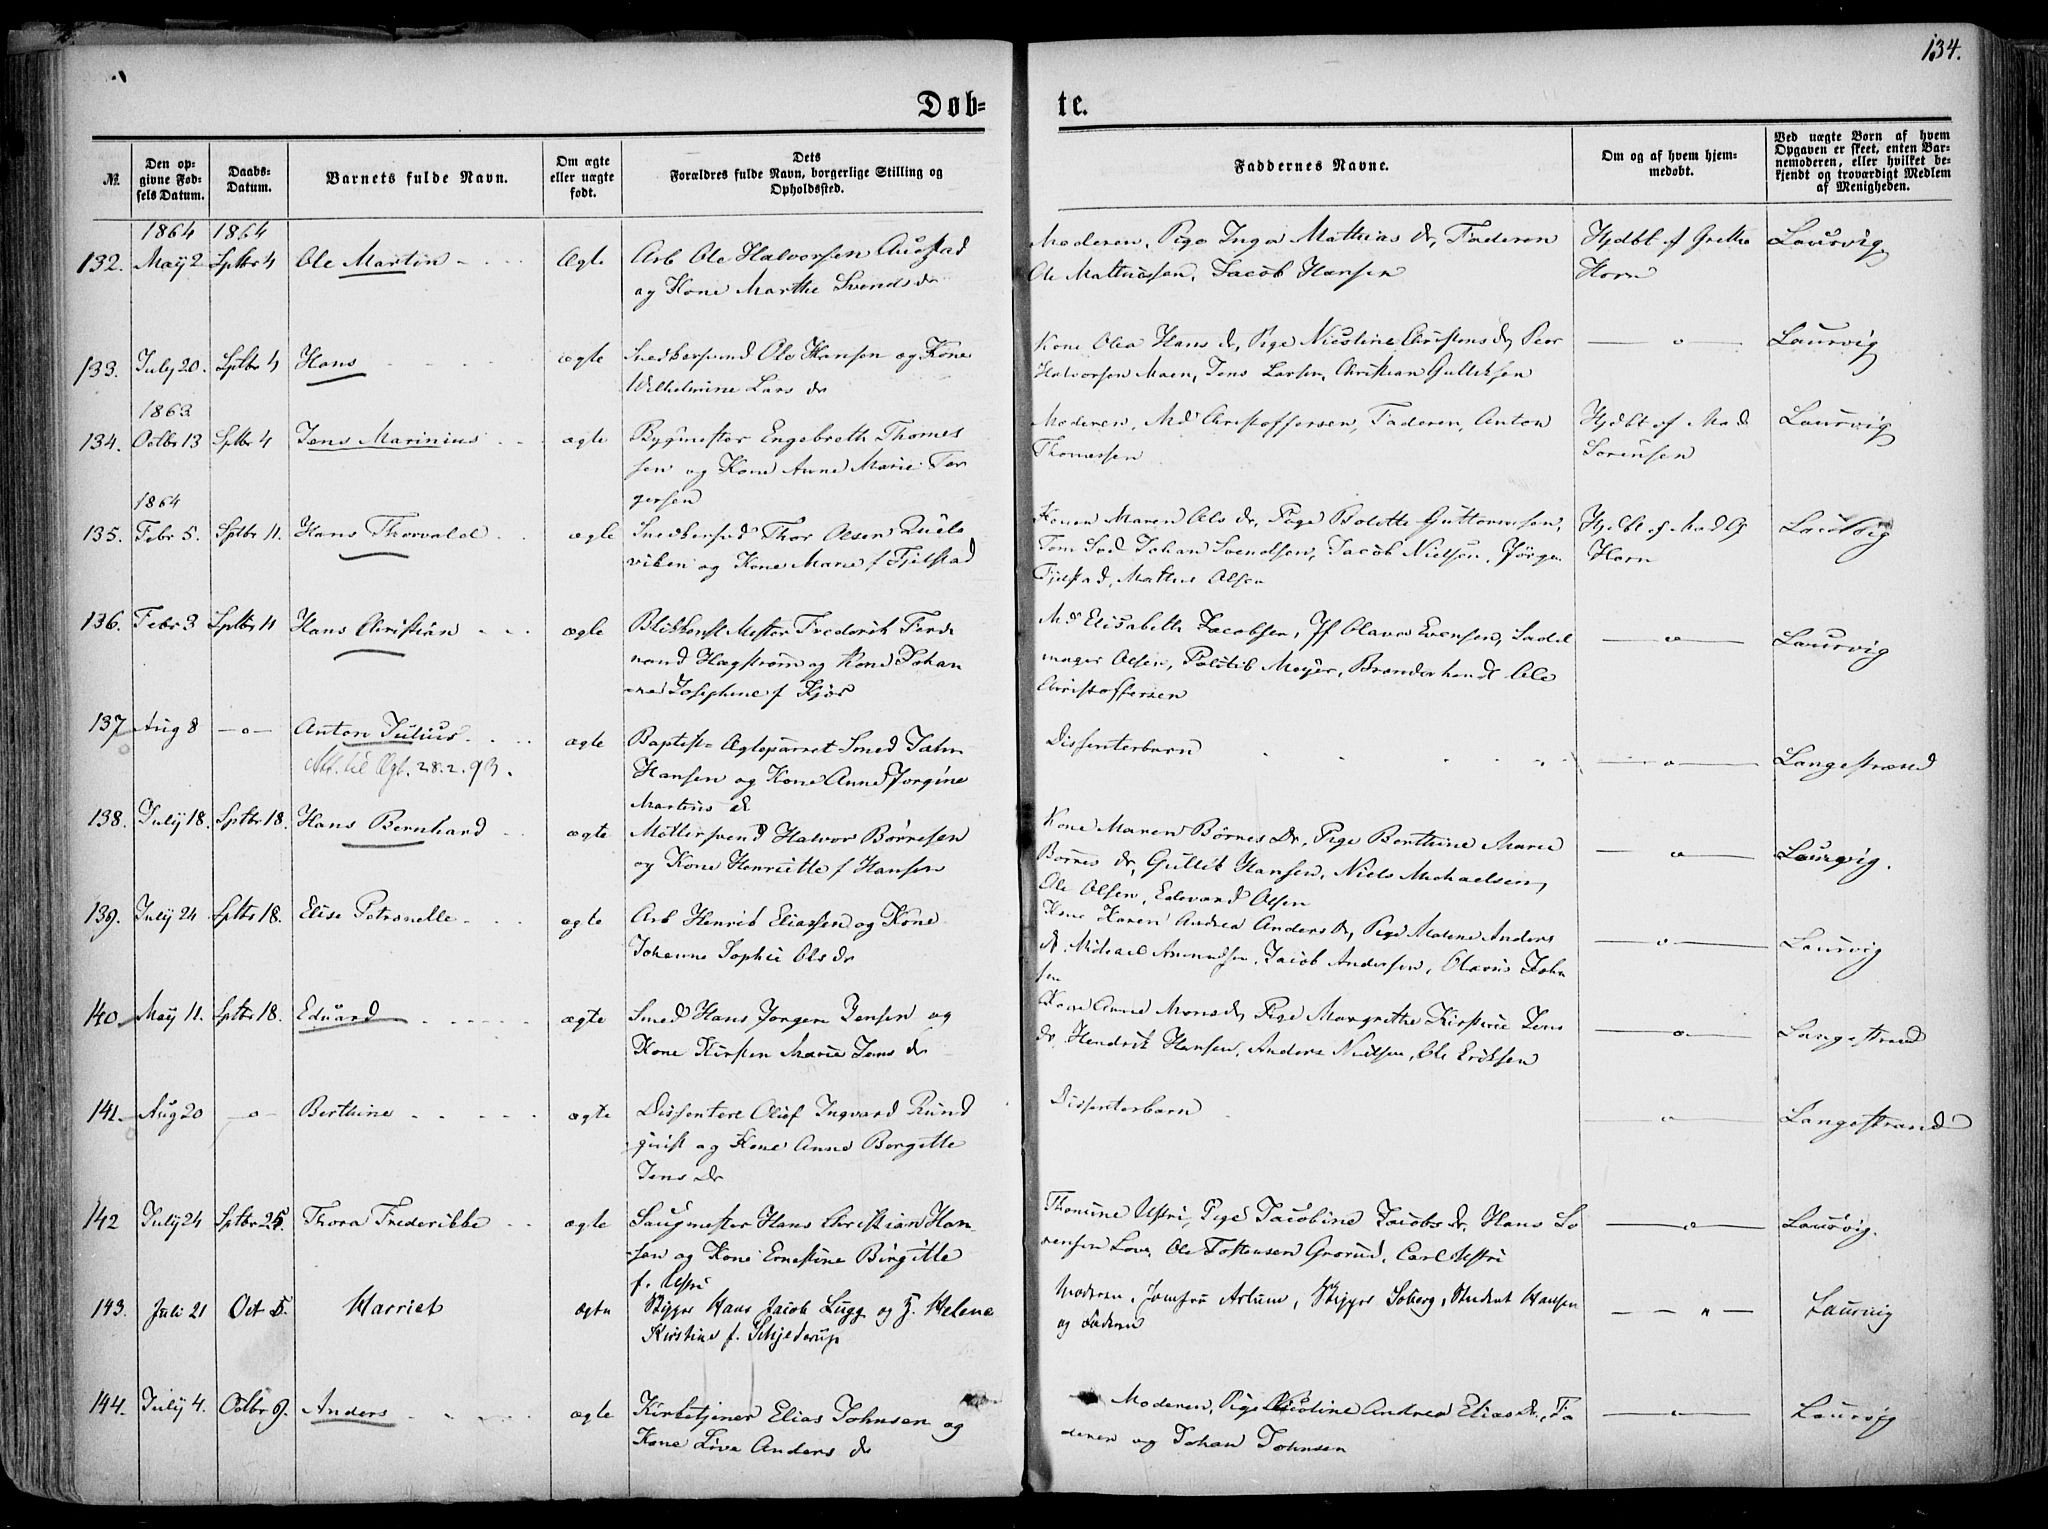 134.
Døb-
te.
№.
Den op-
givne Fød-
sels Datum.
Daabs-
Datum.
Barnets fulde Navn.
Om ægte
eller uægte
født.
Dets
Forældres fulde Navn, borgerlige Stilling og
Opholdssted.
Faddernes Navne.
Om og af hvem hjem-
medøbt.
Ved uægte Børn af hvem
Opgaven er skeet, enten Bar-
nemoderen, eller hvilket be-
kjendt og troværdigt Medlem
af Menigheden.
1864 1864
132. Maÿ 2 Sptbr 4 Ole Martin Ægte Arb Ole Halvorsen Austad
og Kone Marthe Svends dr
Moderen, Pige Inga Mathias dr, Faderen
Ole Mathiessen, Jacob Hansen
Hjdbt af Grethe
Horn
Laurvig
133. July 20. Sptbr 4 Hans ægte Snedkersvend Ole Hansen og Kone
Wilhelmine Lars dr
Kone Olea Hans dr, Pige Nicoline Christens dr, Peer
Halvorsen Moen, Jens Larsen, Christian Gulliksen
— o —
Laurvig
1863
134. Octbr 13 Sptbr 4 Jens Marinius ægte Bygmester Engebreth Thomes
sen og Kone Anne Marie Tor
gersen
Moderen, Md Christoffersen, Faderen, Anton
Thomessen
Hjdbt af Mad
Sørensen
Laurvig
1864
135. Febr 5. Sptbr 11. Hans Thorvald ægte Snedkersvd Thor Olsen
viken og Kone Marie f Fjelstad
Konen Maren Ols dr, Pige Bolette Guttormsen,
Tøm Svd Johan Svendsen, Jacob Nielsen, Jørgen
Fjelstad, Mathis Olsen
Hjdbt af Mad G
Horn
Laurvig
136. Febr 3 Sptbr 11 Hans Christian ægte Blikkenst Mester Frederik Ferdi
nand Hægstrøm og Kone Johan
ne Josephine f Kjør
Md Elisabeth Jacobsen, Jf Olava Evensen, Sadel
mager Olsen, Politib Meyer, Brænderhandl Ole
Christoffersen
— o —
Laurvig
137 Aug 8 — o — Anton Julius ægte Baptist-Ægteparret Smed John
Hansen og Kone Anne Jorgine
Martins dr
Att. til Ægt. 28.2.93.
Dissenterbarn
— o —
Langestrand
138. July 18. Sptbr 18. Hans Bernhard ægte Møllersvend Halvor Børresen
og Kone Henriette f Hansen
Kone Maren Børres Dr, Pige Berthine Marie
Børres dr, Gullik Hansen, Niels Michaelsen,
Ole Olsen, Edevard Olsen
— o —
Laurvig.
139. July 24 Sptbr 18. Elise Petronelle ægte Arb Henrik Eliassen og Kone
Johanne Sophie Ols dr
Kone Karen Andrea Anders dr, Pige Malene Anders
dr, Michael Amundsen, Jacob Andersen, Olavus John
sen
— o —
Laurvig
140 Maÿ 11. Sptbr 18. Eduard ægte Smed Hans Jørgen Jensen og
Kone Kirsten Marie Jens dr
Kone Anne Mons dr, Pige Margrethe Kirstine Jens
dr, Hendrik Hansen, Anders Nielsen, Ole Eriksen
— o —
Langestrand
141. Aug 20 — o — Berthine ægte Dissentere Oluf Ingvard Rund
quist og Kone Anne Borgitte
Jens Dr
Dissenterbarn
— o —
Langestrand
142 July 24 Sptbr 25. Thora Frederikke ægte Saugmester Hans Christian Han
sen og Kone Ernestine Birgitte
f. Ustri
Thomine Ustri, Pige Jacobine Jacobs dr, Hans So
rensen Love, Ole Tostensen Grorud, Carl Ustri
— o —
Laurvig.
143. Juli 21 Oct 5. Harriet ægte Skipper Hans Jacob Lugg og H. Helene
Kirstine f. Schjelderup
Moderen, Jomfru Arlum, Skipper Soberg, Student Hansen
og Faderen
— " —
Laurvig
144. July 4. Octbr 9. Anders ægte Kirketjener Elias Johnsen og
Kone Live Anders dr
Moderen, Pige Nicoline Andrea Elias Dr, Fa
deren og Johan Johnsen
— o —
Laurvig